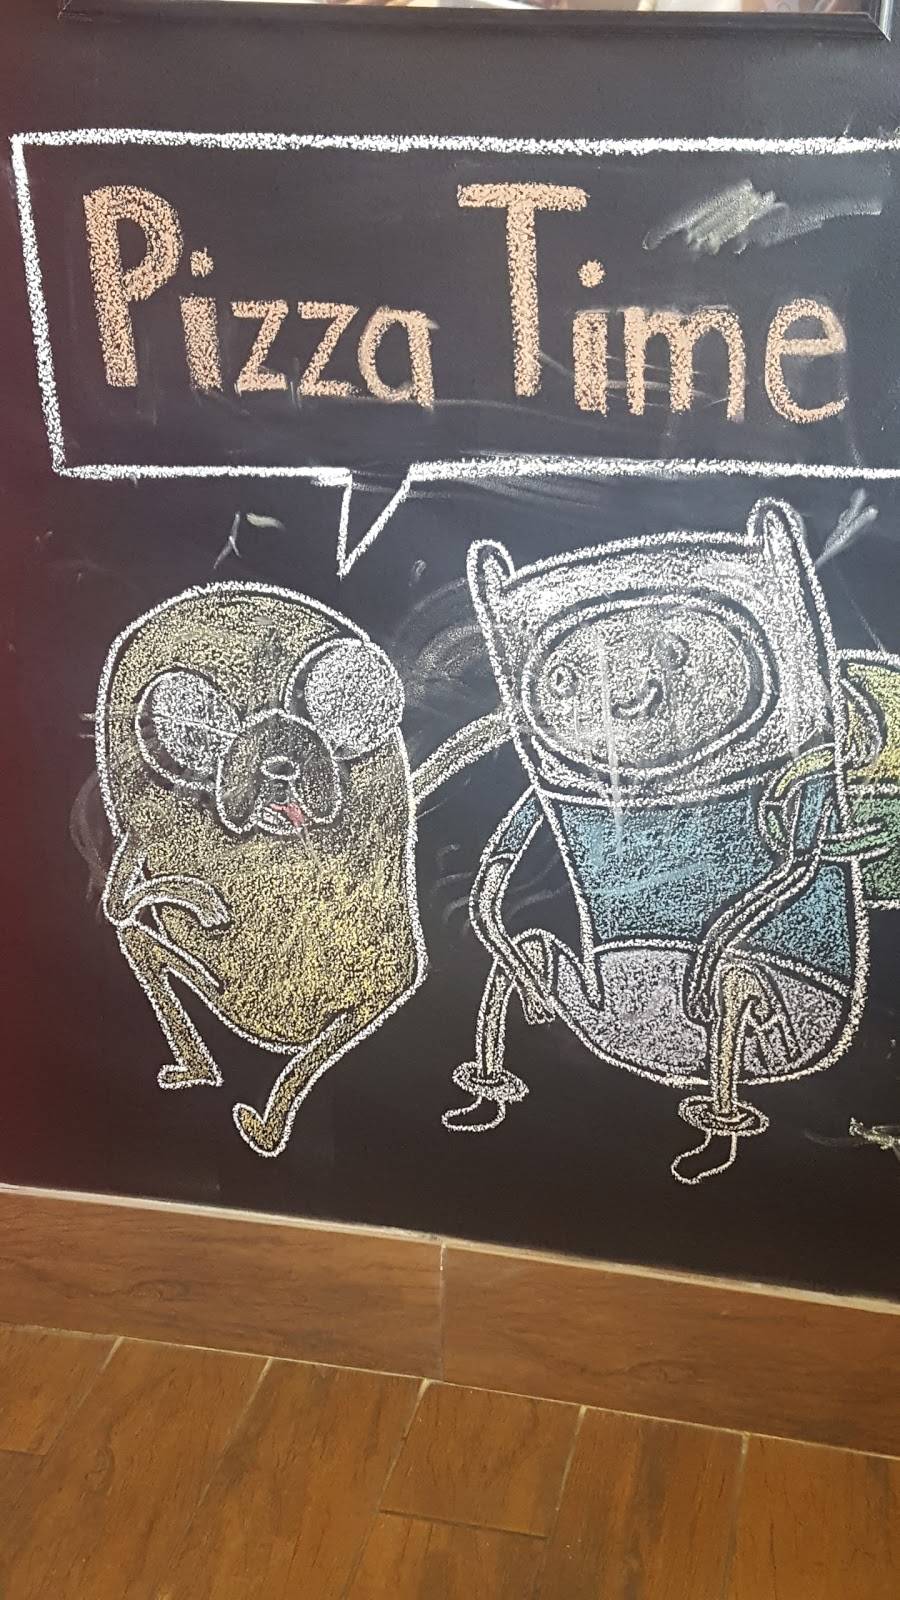 Pizza Time